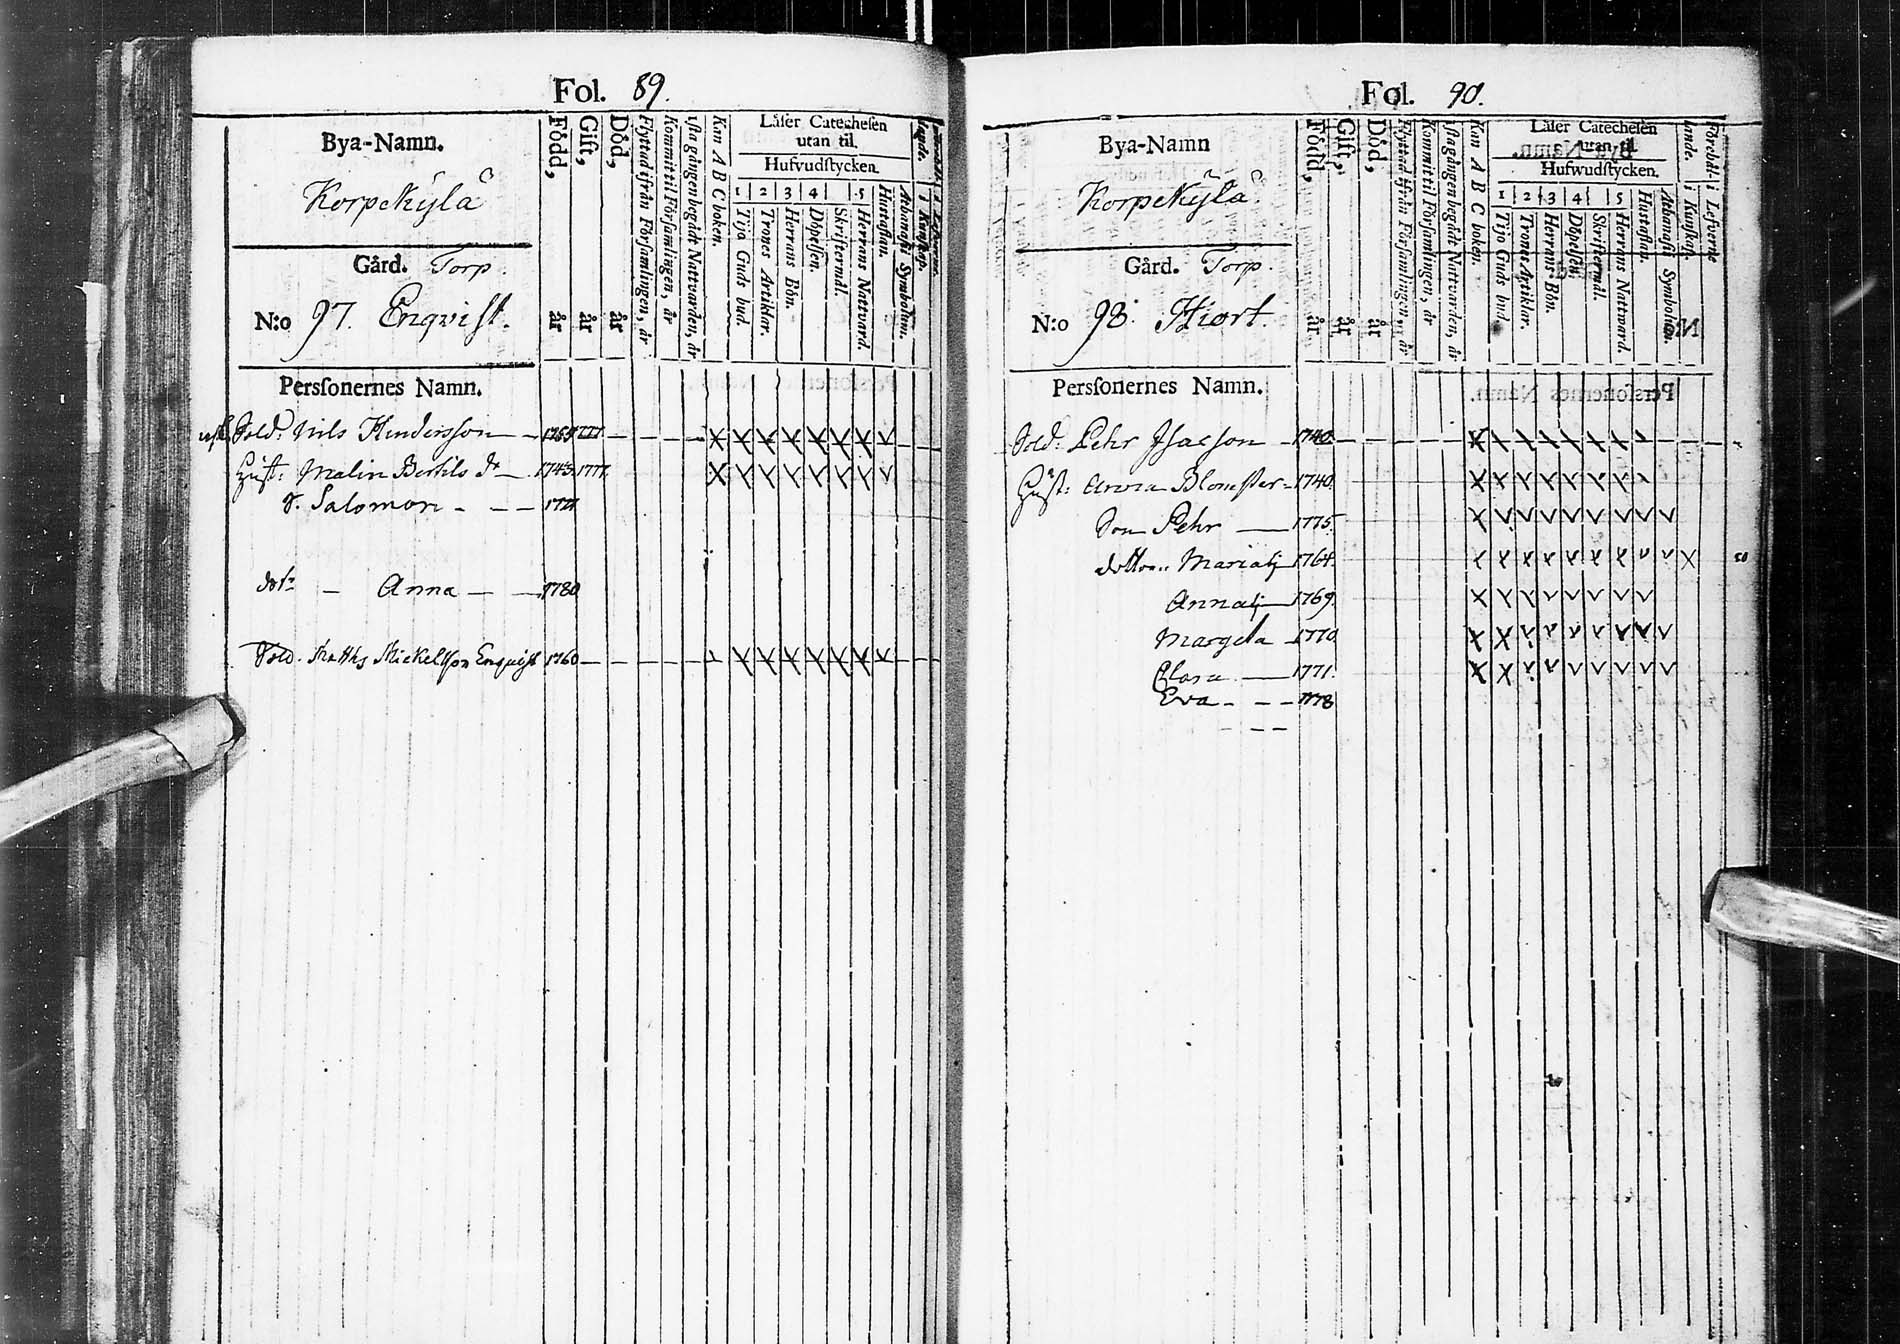 Fol. 89.
Bya-Namn.
Korpekylä
Gård. Torp.
N:o 97. Enqvist.
Född, år
Gift, år
Död, år
Flyttad ifrån Församlingen, år
Kommit til Församlingen, år
1sta gången begådt Nattvarden, år
Kan A B C boken.
Läser Catechesen
utan til.
Hufvudstycken.
1 2 3 4 5
Tijo Guds bud.
Trones Artiklar.
Herrans Bön.
Döpelsen.
Skriftermål.
Herrans Nattvard.
Hustaflan.
Athanasii Symbolum.
Persone​rnes Namn.
Sold: Nils Hindersson 1777
Hust: Malin Bertils dr 1743. 1777.
S. Salomon 1777
dotr Anna 1780
Sold. Matths Mickelsson Enqvist 1760
Fol. 90.
Bya-Namn
Korpekylä
Gård. Torp.
N:o 98. Hiort.
Född, år
Gift, år
Död, år
Flyttad ifrån Församlingen, år
Kommit til Församlingen, år
1sta gången begådt Nattvarden, år
Kan A B C boken.
Läser Catechesen
utan til
Hufwudstycken.
1 2 3 4 5
Tijo Guds bud.
Trones Artiklar.
Herrans Bön.
Döpelsen.
Skriftermål.
Herrans Nattvard.
Hustaflan.
Athanasii Symbolum.
Förehållande. i Kunskap. i Lefverne
Personernes Namn.
Sold: Pehr Isacson 1740
Hust: Anna Blomster 1740.
Son Pehr 1775.
dotter: Maria 1764.
Anna 1769.
Margeta 1770
Clara 1771.
Eva 1778